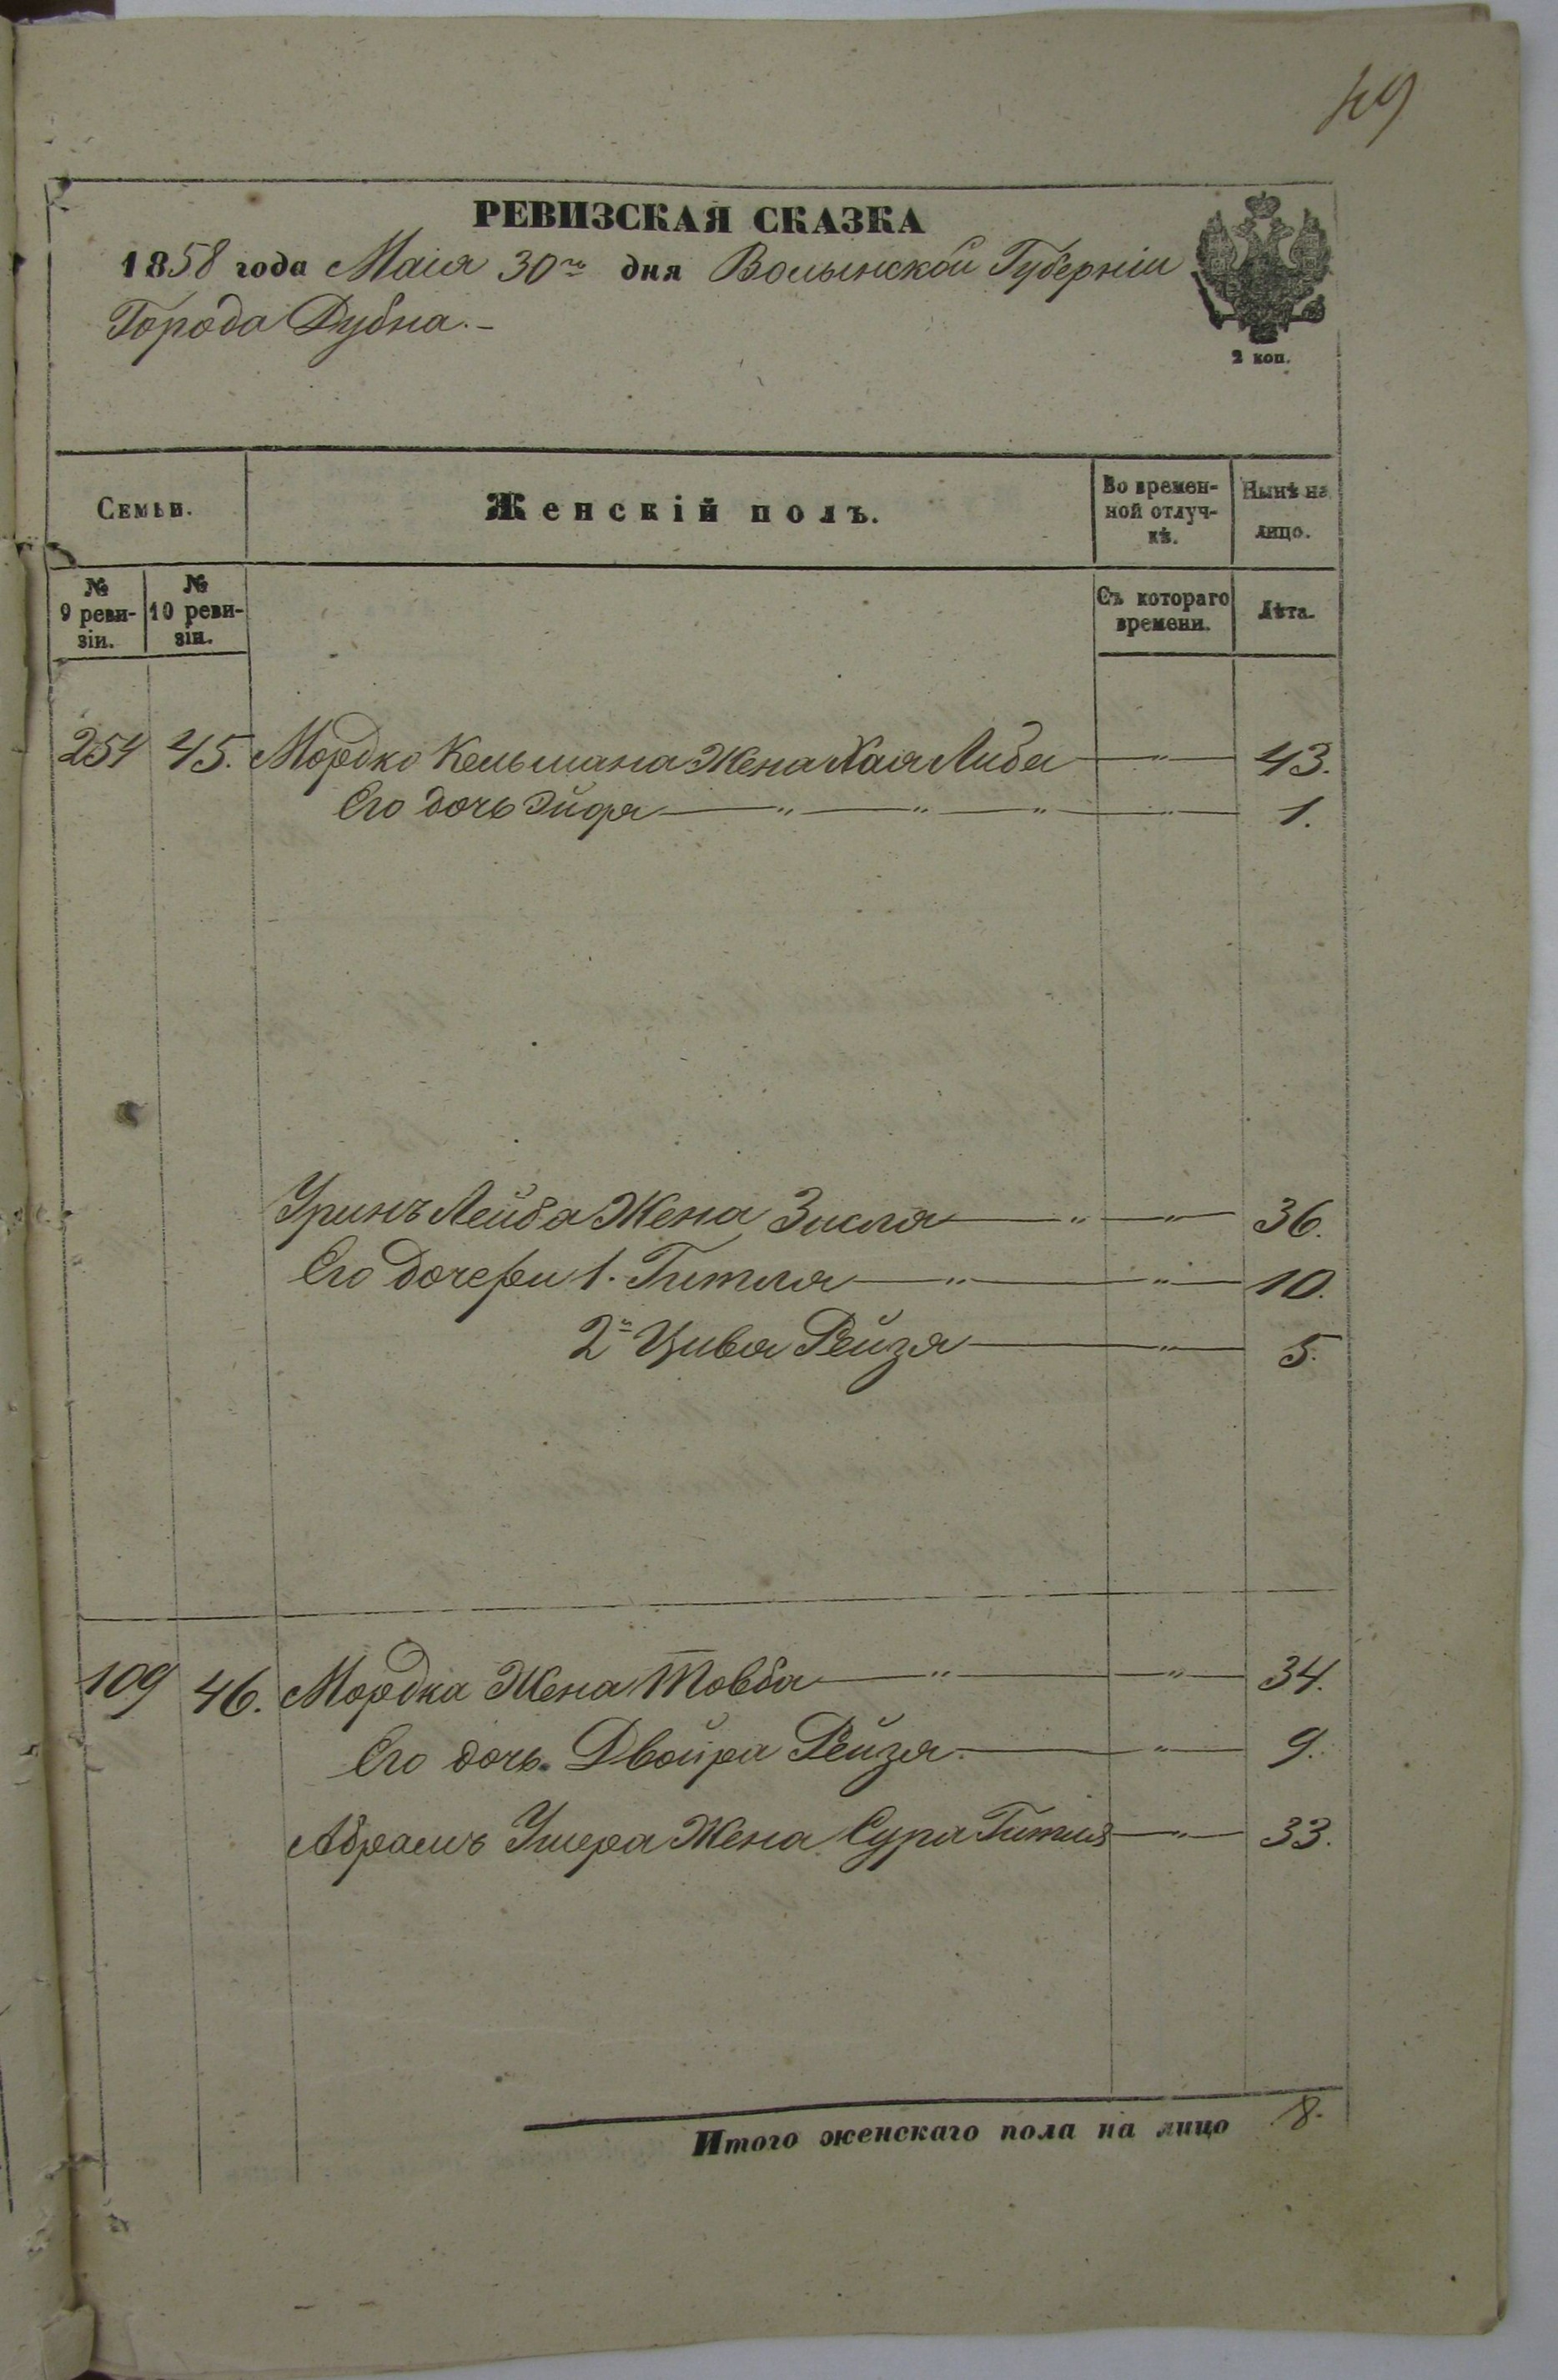 49
РЕВИЗСКАЯ СКАЗКА
1858 года Маія 30го дня Волынской Губерніи
Города Дубна.-
2 коп.
Семьи.
Женскій полъ.
Во времен-
ной отлуч-
кѣ.
Нынѣ на
лицо.
№
9 реви-
зіи.
№
10 реви-
зіи.
Съ котораго
времени.
Лѣта.
254 45. Мордко Кельмана Жена Хая Либа — " — 43.
Его дочь Эйдя — " — " — " — " — 1.
Уринъ Лейба Жена Зисля — " — " — 36.
Его дочери 1. Гитля — " — " — 10.
2я Цива Рейзя — " — 5.
109 46. Мордка Жена Товба — " — " — 34.
Его дочь Двойра Рейзя — " — 9.
Абрамъ Ушера Жена Сура Гитля — " — 33.
Итого женскаго пола на лицо 8.